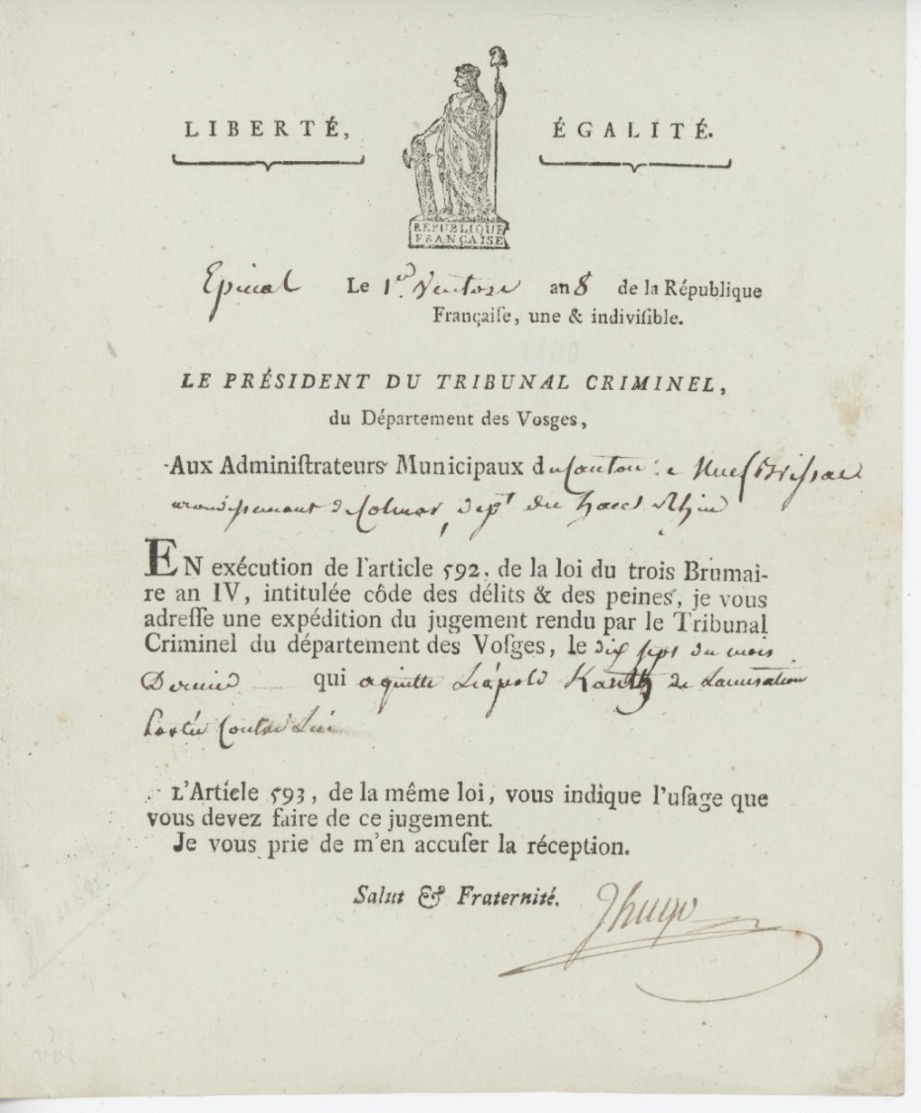 LIBERTÉ, ÉGALITÉ.
RÉPUBLIQUE
FRANÇAISE
Epinal Le 1er. Ventose an 8 de la République
Françaiſe, une & indiviſible.
LE PRÉSIDENT DU TRIBUNAL CRIMINEL,
du Département des Vosges,
Aux Adminiſtrateurs Municipaux du Canton de Neuf Brissac
arrondissement de Colmar, dept du haut Rhin
EN exécution de l'article 592. de la loi du trois Brumai-
re an IV, intitulée côde des délits & des peines, je vous
adreſſe une expédition du jugement rendu par le Tribunal
Criminel du département des Voſges, le dix sept du mois
Dernier qui aquitte Léopold Kautz de Laccusation
Portée Contre Lui
L'Article 593, de la même loi, vous indique l'uſage que
vous devez faire de ce jugement.
Je vous prie de m'en accuſer la réception.
Salut & Fraternité. Jhugo